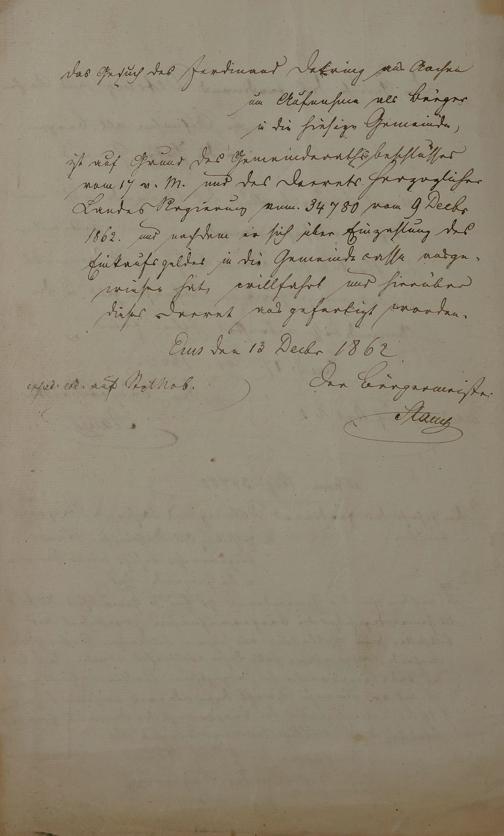 Das Gesuch des Ferdinand Detring aus Aachen
um Aufnahme als Bürger
in die hiesige Gemeinde,
ist auf Grund des Gemeinderathsbeschlusses
vom 17 v. M. und des Decrets Herzoglicher
Landes Regierung vom 9 Decbr
1862. und nachdem er sich über Einzahlung des
Einkaufsgeldes in die Gemeindecasse ausge-
wiesen hat, willfahrt und hierüber
dieses Decret ausgefertigt worden.
Ems den 13 Decbr 1862
Der Bürgermeister